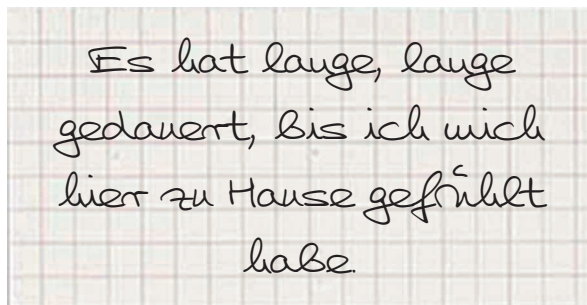 Es hat lange, lange
gedauert, bis ich mich
hier zu Hause gefühlt
habe.